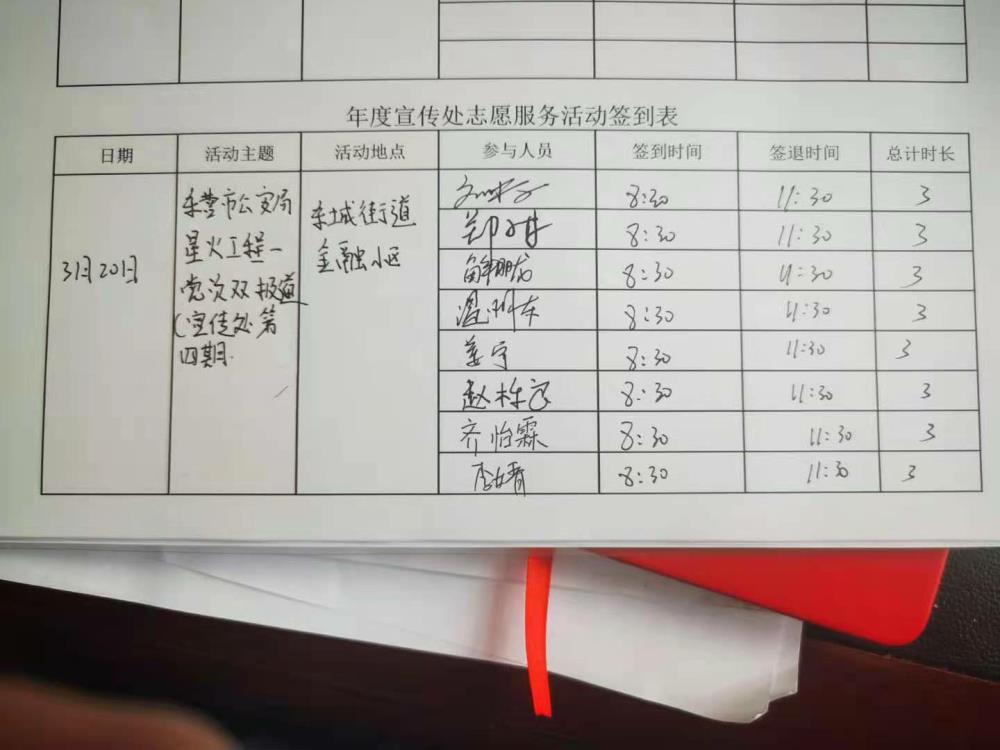 年度宣传处志愿服务活动签到表
日期 活动主题 活动地点 参与人员 签到时间 签退时间 总计时长
3月20日
东营市公安局
星火工程一
党次双报道
(宣传处第
四期.
东城街道
金融小区
8:30 11:30 3
郑 8:30 11:30 3
解鹏龙 8:30 11:30 3
温洲东 8:30 11:30 3
姜宁 8:30 11:30 3
赵栋 8:30 11:30 3
齐怡霖 8:30 11:30 3
李婧 8:30 11:30 3